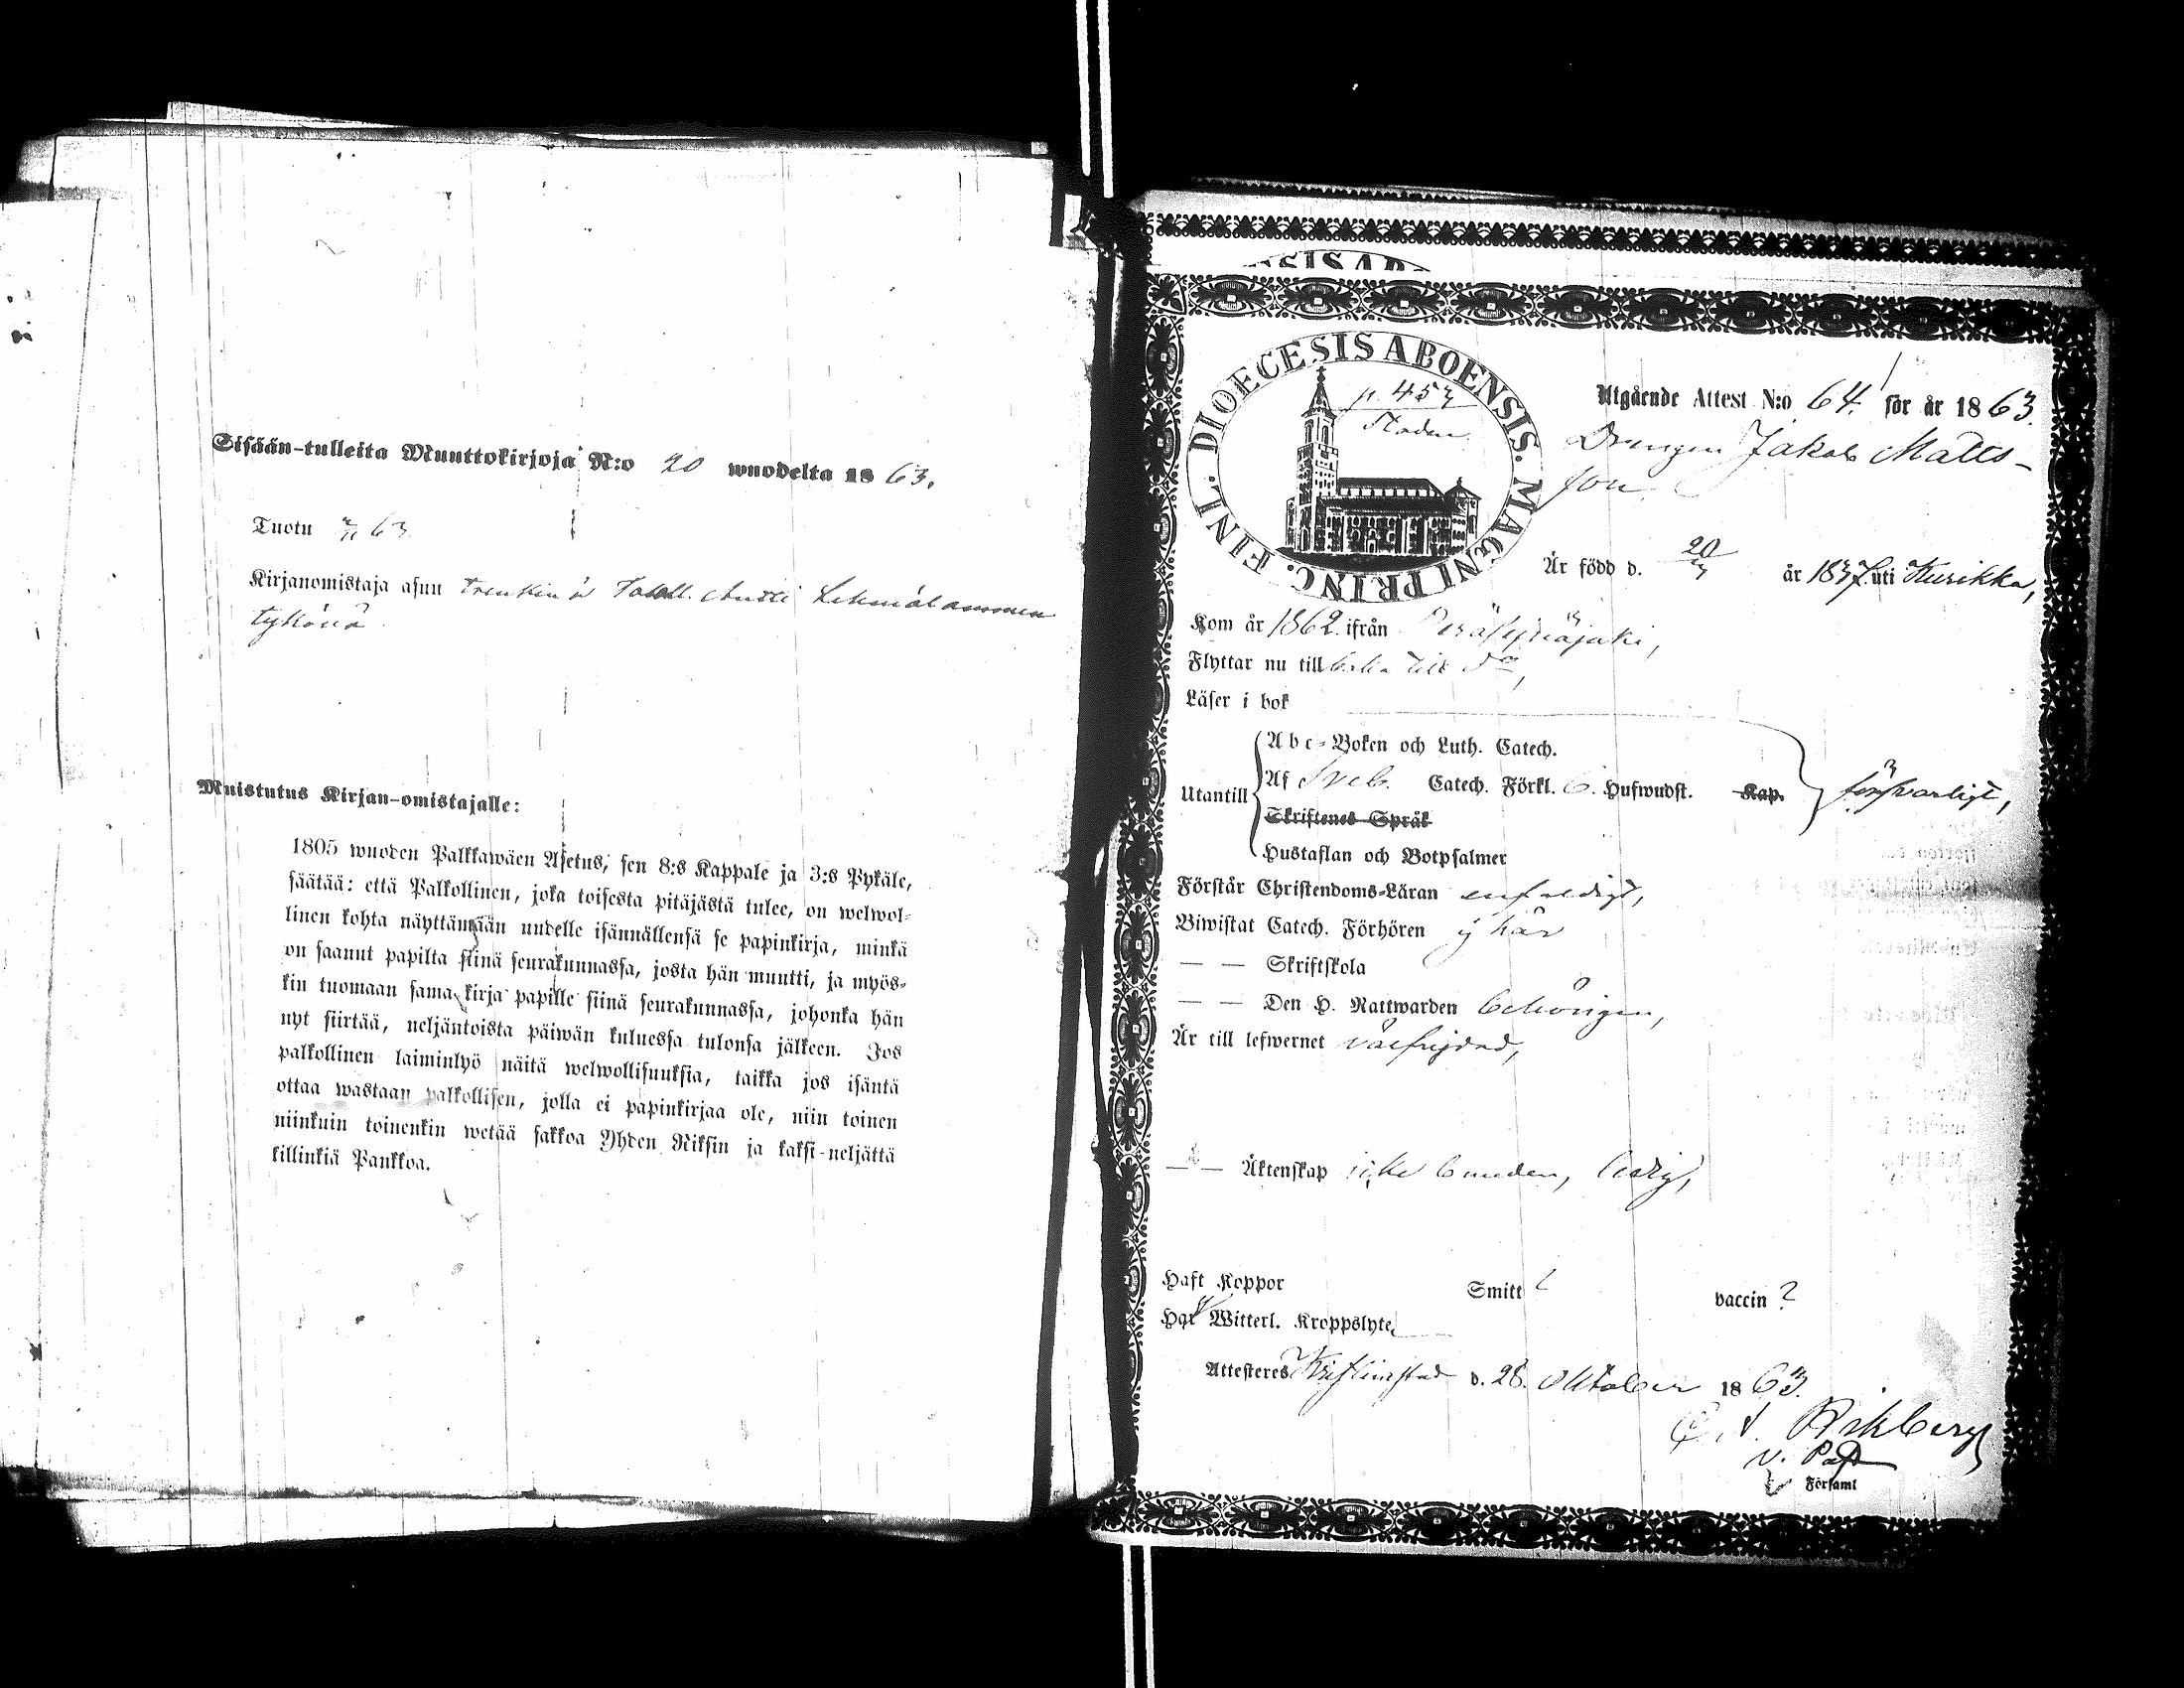 Sisään-tulleita Muuttokirjoja N:o 20 wuodelta 1863.
Tuotu 63
Kirjanomistaja asuu Antti
tykönä
Muistutus Kirjan-omistajalle:
1805 wuoden Palkkawäen Asetus, sen 8:s Kappale ja 3:s Pykäle,
säätää: että Palkollinen, joka toisesta pitäjästä tulee, on welwol-
linen kohta näyttämään uudelle isännällensä se papinkirja, minkä
on saanut papilta siinä seurakunnassa, josta hän muutti, ja myös-
kin tuomaan sama kirja papille siinä seurakunnassa, johonka hän
nyt siirtää, neljäntoista päiwän kuluessa tulonsa jälkeen. Jos
palkollinen laiminlyö näitä welwollisuuksia, taikka jos isäntä
ottaa wastaan palkollisen, jolla ei papinkirjaa ole, niin toinen
niinkuin toinenkin wetää sakkoa Yhden Riksin ja kaksi-neljättä
killinkiä Pankkoa.
FINL. DIOECESIS ABOENSIS. MAGNI PRINC.
p. 457
Staden.
Utgående Attest N:o 64. för år 1863.
Drengen Jakob Matts-
son.
Är född d. 20 år 1837 uti Kurikka,
Kom år 1862 ifrån Peräseinäjoki,
Flyttar nu till
Läser i bok
Abc-Boken och Luth. Catech.
Utantill Af Sveb. Catech. Förkl. 6. Hufwudst. Kap. försvarligt,
Skriftenes Språk
Hustaflan och Botpsalmer
Förstår Christendoms-Läran enfaldigt,
Biwistat Catech. Förhören ej här
— — Skriftskola
— — Den H. Nattwarden behörigen,
Är till lefwernet välfrejdad,
— — Äktenskap icke bunden, ledig,
Haft Koppor Smitt vaccin ?
Har Witterl. Kroppslyte
Attesteres Kristinestad d. 28. Oktober 1863.
v. Past.
Församl